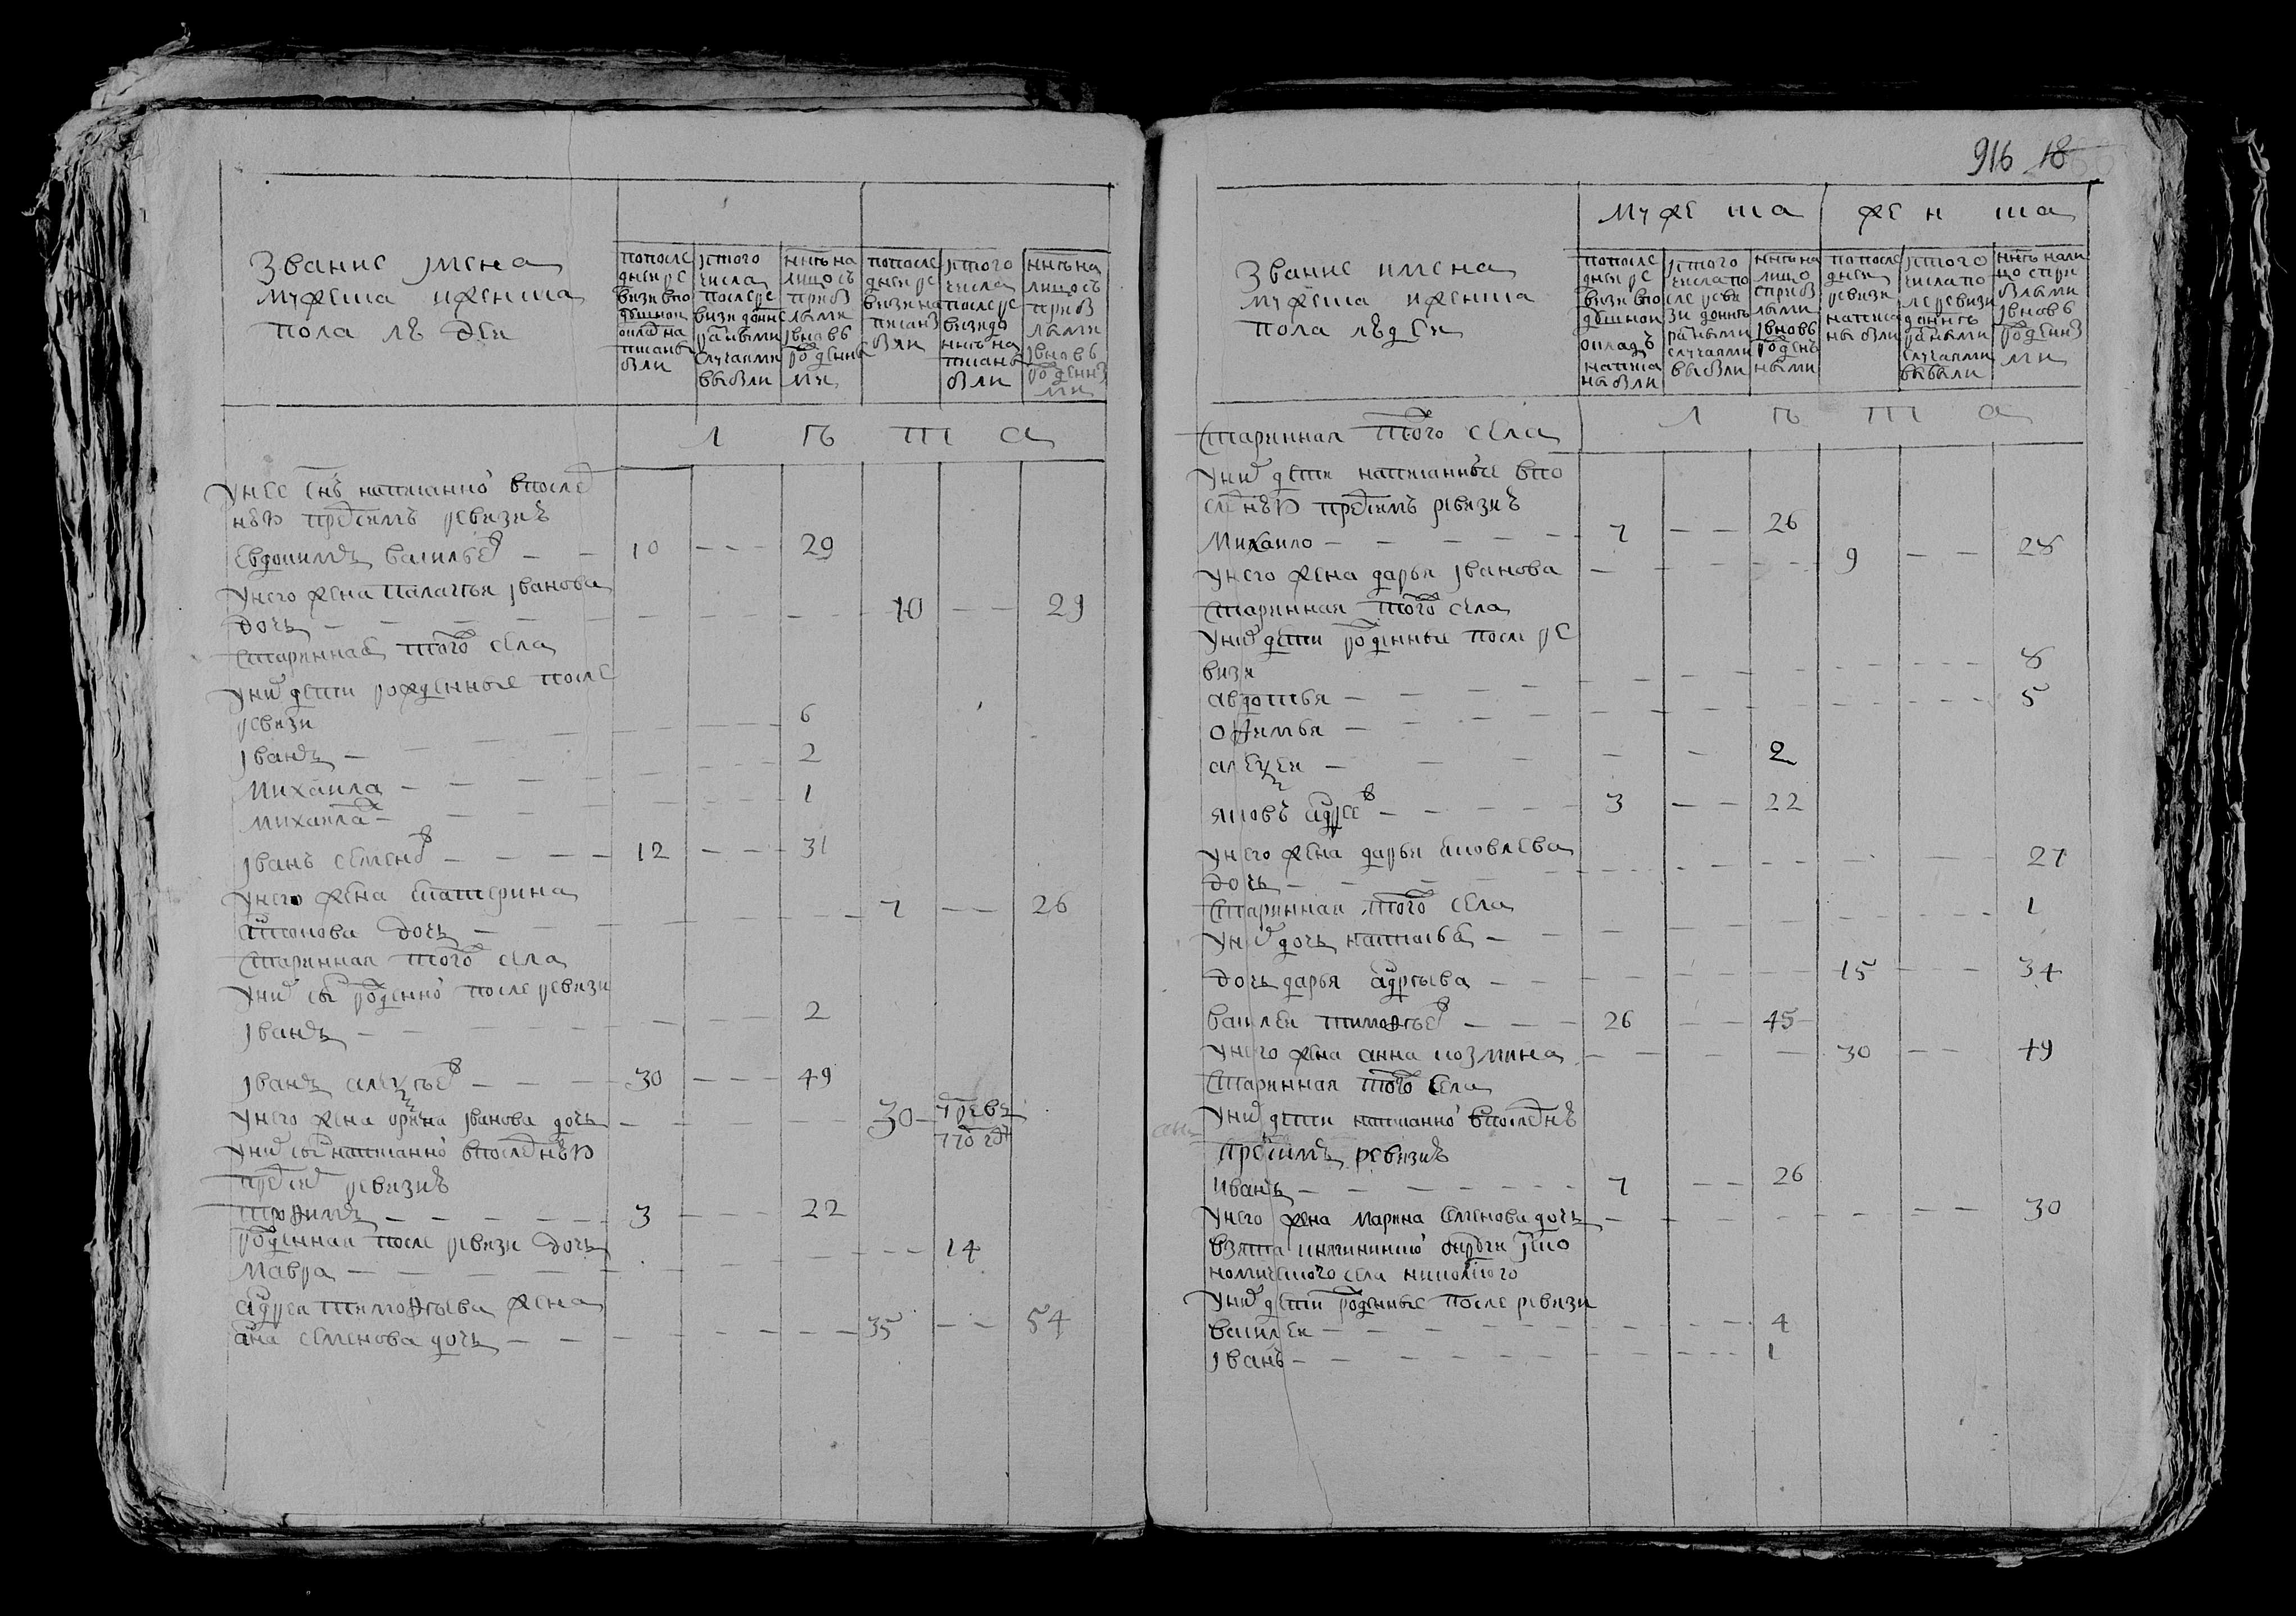 Звание имена
мужеска иженска
пола лѣ деи
попосле
днеи ре
визи впо
душнои
оклад на
писанъ
были
ис того
числа
после ре
визи доннѣ
разными
случаями
выбыли
ннѣ на
лицо съ
прибы
лыми
ивновь
рожденны
ми
попосле
днеи ре
визи на
писаны
были
ис того
числа
после ре
визи до
ннѣ на
писаны
были
ннѣ на
лицо съ
прибы
лыми
ивновь
рожденны
ми
л ѣ т а
унее снъ написанно впослед
нѣй пред симъ ревизиѣ
Евдокимъ васильев 10 29
унего жена палагѣя иванова
дочь 10 29
старинная того села
уних дети рожденные после
ревизи
иванъ 6
михаила 2
михаила 1
иванъ семенов 12 31
унего жена катерина
антонова дочь 7 26
старинная того села
уних снъ рожденно после ревизи
иванъ 2
иванъ алексѣев 30 49
унего жена орина иванова дочь 30
уних снъ написанно впоследнѣй
пред сим ревизиѣ
трофимъ 3 22
рожденная после ревизи дочь
мавра 14
андреа тимофѣева жена
анна семенова дочь 35 54
916 18
мужеска женска
Звание имена
мужеска иженска
пола лѣдеи
попосле
днеи ре
визи впо
душнои
окладъ
написа
ны были
ис того
числа по
сле реви
зи доннѣ
разными
случаями
выбыли
ннѣ на
лицо
сприбы
лыми
ивновь
рожден
ными
попосле
днеи
ревизи
написа
ны были
ис того
числа по
сле ревизи
доннѣ
разными
случаями
выбыли
ннѣ нали
цо спри
былыми
ивновь
рожденны
ми
л ѣ т а
старинная того села
уних дети написанные впо
следнѣй пред симъ ревизиѣ
Михаило 7 26
унего жена дарья иванова 9 28
старинная того села
уних дети рожденные после ре
визи
авдотья 8
офимья 5
алексеи 2
яковъ андреев 3 22
унего жена дарья яковлева
дочь 27
старинная того села
уних дочь наталья 1
дочь дарья андрѣева 15 34
василеи тимофѣев 26 45
унего жена анна козмина 30 49
старинная того села
уних дети написанно впоследнѣ
пред симъ ревизиѣ
иванъ 7 26
унего жена марина семенова дочь 30
взята
номического села николского
уних дети рожденные после ревизи
василеи 4
иванъ 1